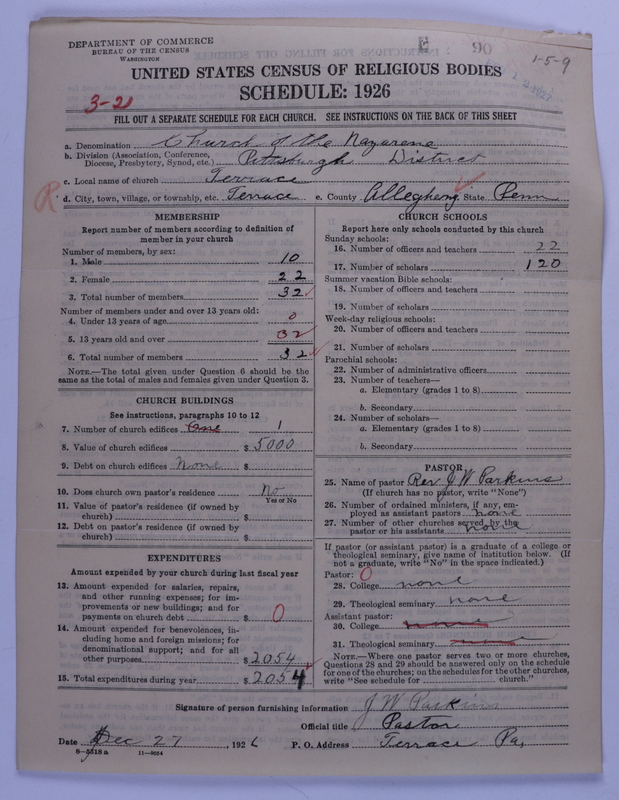 DEPARTMENT OF COMMERCE
BUREAU OF THE CENSUS
WASHINGTON
E 90
1-5-9
UNITED STATES CENSUS OF RELIGIOUS BODIES
SCHEDULE: 1926
3-21
FILL OUT A SEPARATE SCHEDULE FOR EACH CHURCH. SEE INSTRUCTIONS ON THE BACK OF THIS SHEET
a. Denomination Church of the Nazarene
b. Division (Association, Conference, Diocese, Presbytery, Synod, etc.) Pittsburgh District
c. Local name of church Terrace
R
d. City, town, village, or township, etc. Terrace e. County Allegheny State Penn
MEMBERSHIP
Report number of members according to definition of
member in your church
Number of members, by sex:
1. Male 10
2. Female 22
3. Total number of members 32
Number of members under and over 13 years old:
4. Under 13 years of age 0
5. 13 years old and over 32
6. Total number of members 32
NOTE.—The total given under Question 6 should be the
same as the total of males and females given under Question 3.
CHURCH BUILDINGS
See instructions, paragraphs 10 to 12
7. Number of church edifices One 1
8. Value of church edifices $ 5000
9. Debt on church edifices None $
10. Does church own pastor's residence No
Yes or No
11. Value of pastor's residence (if owned by
church) $
12. Debt on pastor's residence (if owned by
church) $
EXPENDITURES
Amount expended by your church during last fiscal year
13. Amount expended for salaries, repairs,
and other running expenses; for im-
provements or new buildings; and for
payments on church debt $ 0
14. Amount expended for benevolences, in-
cluding home and foreign missions; for
denominational support; and for all
other purposes $ 2054
15. Total expenditures during year $ 2054
CHURCH SCHOOLS
Report here only schools conducted by this church
Sunday schools:
16. Number of officers and teachers 22
17. Number of scholars 120
Summer vacation Bible schools:
18. Number of officers and teachers
19. Number of scholars
Week-day religious schools:
20. Number of officers and teachers
21. Number of scholars
Parochial schools:
22. Number of administrative officers
23. Number of teachers—
a. Elementary (grades 1 to 8)
b. Secondary
24. Number of scholars—
a. Elementary (grades 1 to 8)
b. Secondary
PASTOR
25. Name of pastor Rev J W Parkins
(If church has no pastor, write "None")
26. Number of ordained ministers, if any, em-
ployed as assistant pastors none
27. Number of other churches served by the
pastor or his assistants none
If pastor (or assistant pastor) is a graduate of a college or
theological seminary, give name of institution below. (If
not a graduate, write "No" in the space indicated.)
Pastor: 0
28. College none
29. Theological seminary none
Assistant pastor:
30. College none
31. Theological seminary none
NOTE.—Where one pastor serves two or more churches,
Questions 28 and 29 should be answered only on the schedule
for one of the churches; on the schedules for the other churches,
write "See schedule for church."
Signature of person furnishing information J W Parkins
Official title Pastor
Date Dec 27, 1926 P. O. Address Terrace Pa,
8-5318a 11-9054